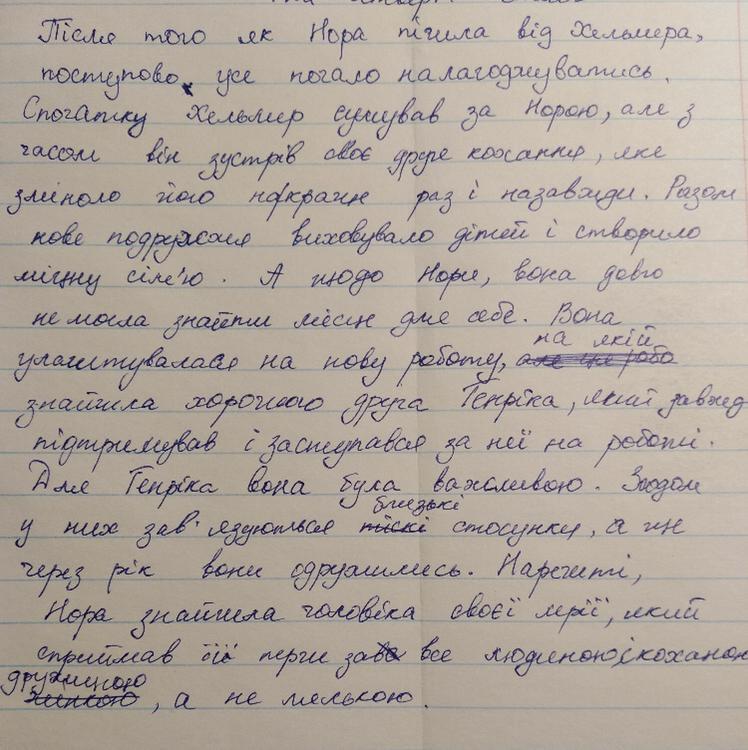 Після того як Нора пішла від Хельмера,
поступово усе почало налагоджуватись.
Спочатку Хельмер сумував за Норою, але з
часом він зустрів своє друге кохання, яке
змінило його на краще раз і назавжди. Разом
нове подружжя виховувало дітей і створило
міцну сім'ю. А щодо Нори, вона довго
не могла знайти місця для себе. Вона
улаштувалася на нову роботу, на якій
знайшла хорошого друга Генріка, який завжд
підтримував і заступався за неї на роботі.
Для Генріка вона була важливою. Згодом
у них зав'язуються близькі стосунки, а
через рік вони одружились. Нарешті,
Нора знайшла чоловіка своєї мрії, який
сприймав її перш за все людиною і коханою
дружиною, а не лялькою.